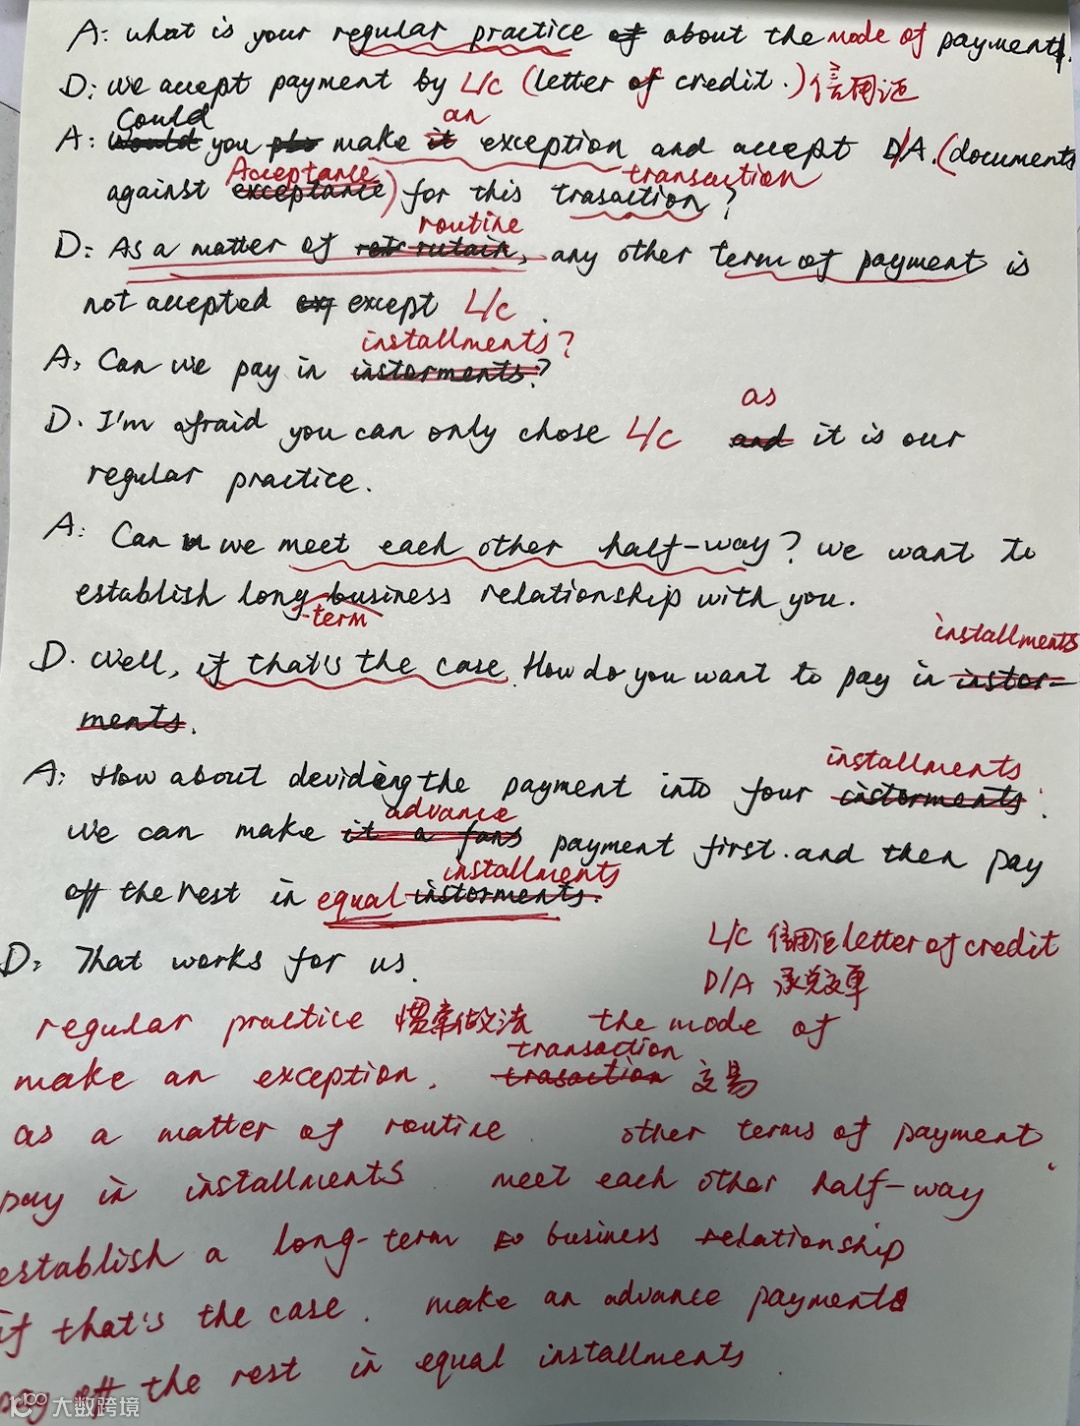 A: what is your regular practice of about the mode of payment.
D: we accept payment by L/C (letter of credit.) 信用证
Could an
A: Would you pls make it exception and accept D/A. (documents
Acceptance transaction
against exceptance) for this trasaction?
routine
D: As a matter of rutain, any other term of payment is
not accepted except L/C.
installments?
A: Can we pay in instorments?
as
D. I'm afraid you can only chose L/C and it is our
regular practice.
A: Can we meet each other half-way? we want to
establish long business relationship with you.
-term
installments
D. Well, if that's the case. How do you want to pay in instor-
ments.
installments
A: How about deviding the payment into four instorments.
advance
we can make it a fans payment first. and then pay
installments
off the rest in equal instorments.
L/C 信用证 letter of credit
D: That works for us.
D/A 承兑交单
regular practice 惯常做法 the mode of
transaction
make an exception. trasaction 交易
as a matter of routine. other terms of payment.
pay in installments meet each other half-way
establish a long-term business relationship
if that's the case. make an advance payment
pay off the rest in equal installments.
大数跨境